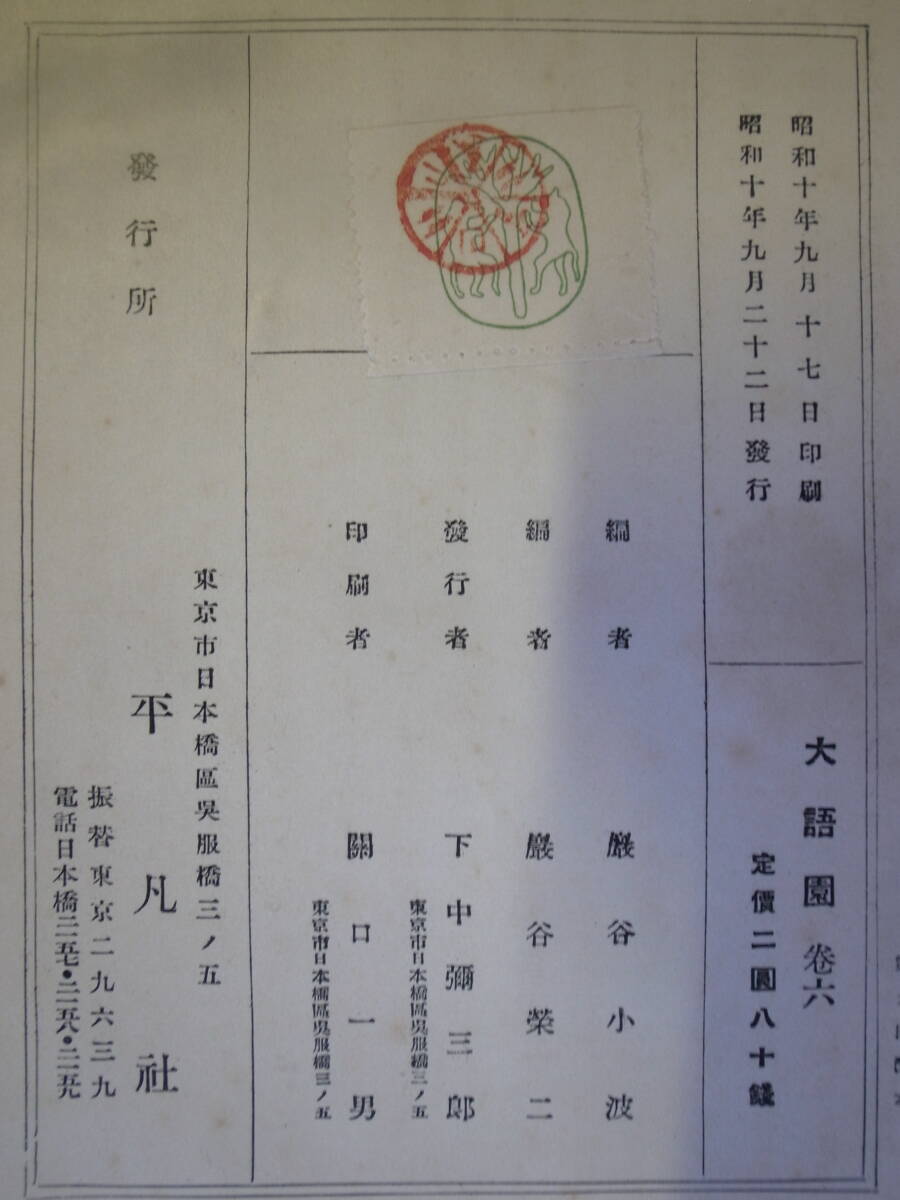 昭和十年九月十七日印刷
昭和十年九月二十二日發行
大語園 卷六
定價二圓八十錢
編者 巖谷小波
編者 巖谷榮二
發行者 下中彌三郎
東京市日本橋區吳服橋三ノ五
印刷者 關口一男
東京市日本橋區吳服橋三ノ五
發行所
東京市日本橋區吳服橋三ノ五
平凡社
振替東京二九六三九
電話日本橋二一五七・二一五八・二一五九